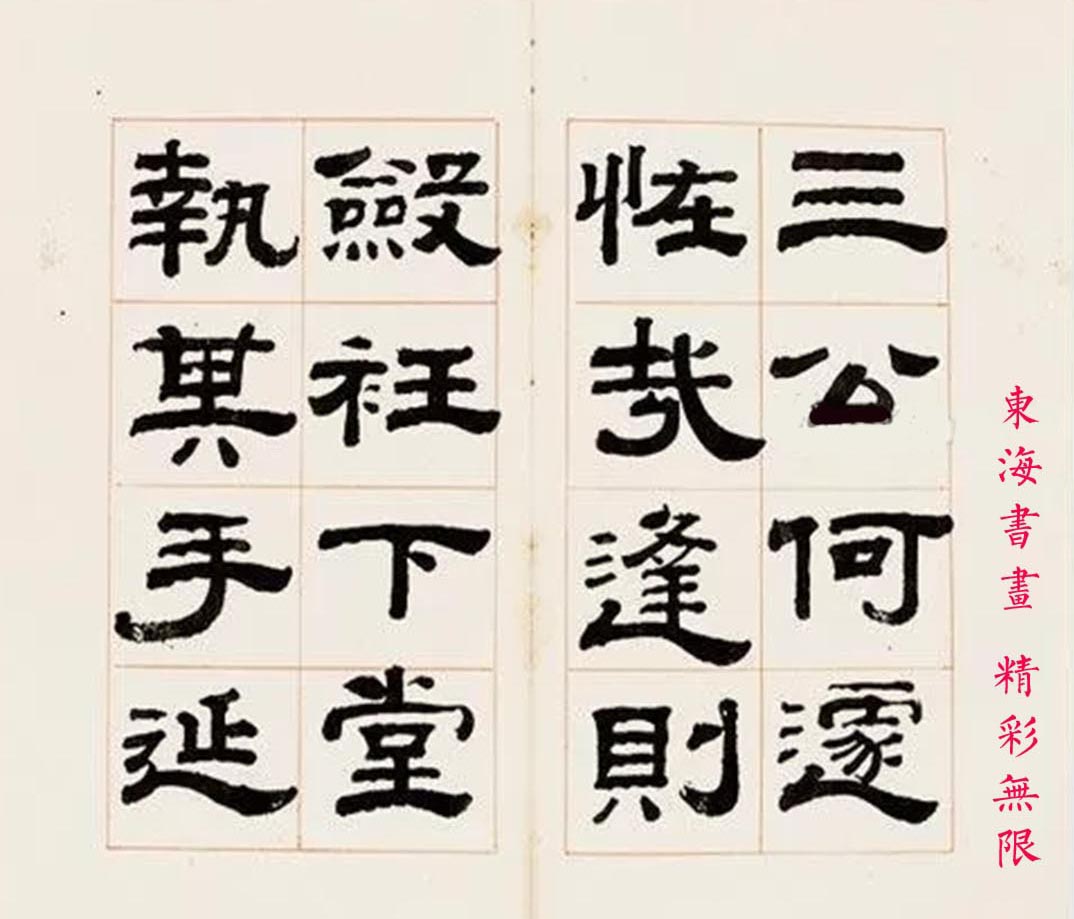 三公何遽
恠哉逢則
斂衽下堂
執其手延
東海書畫 精彩無限